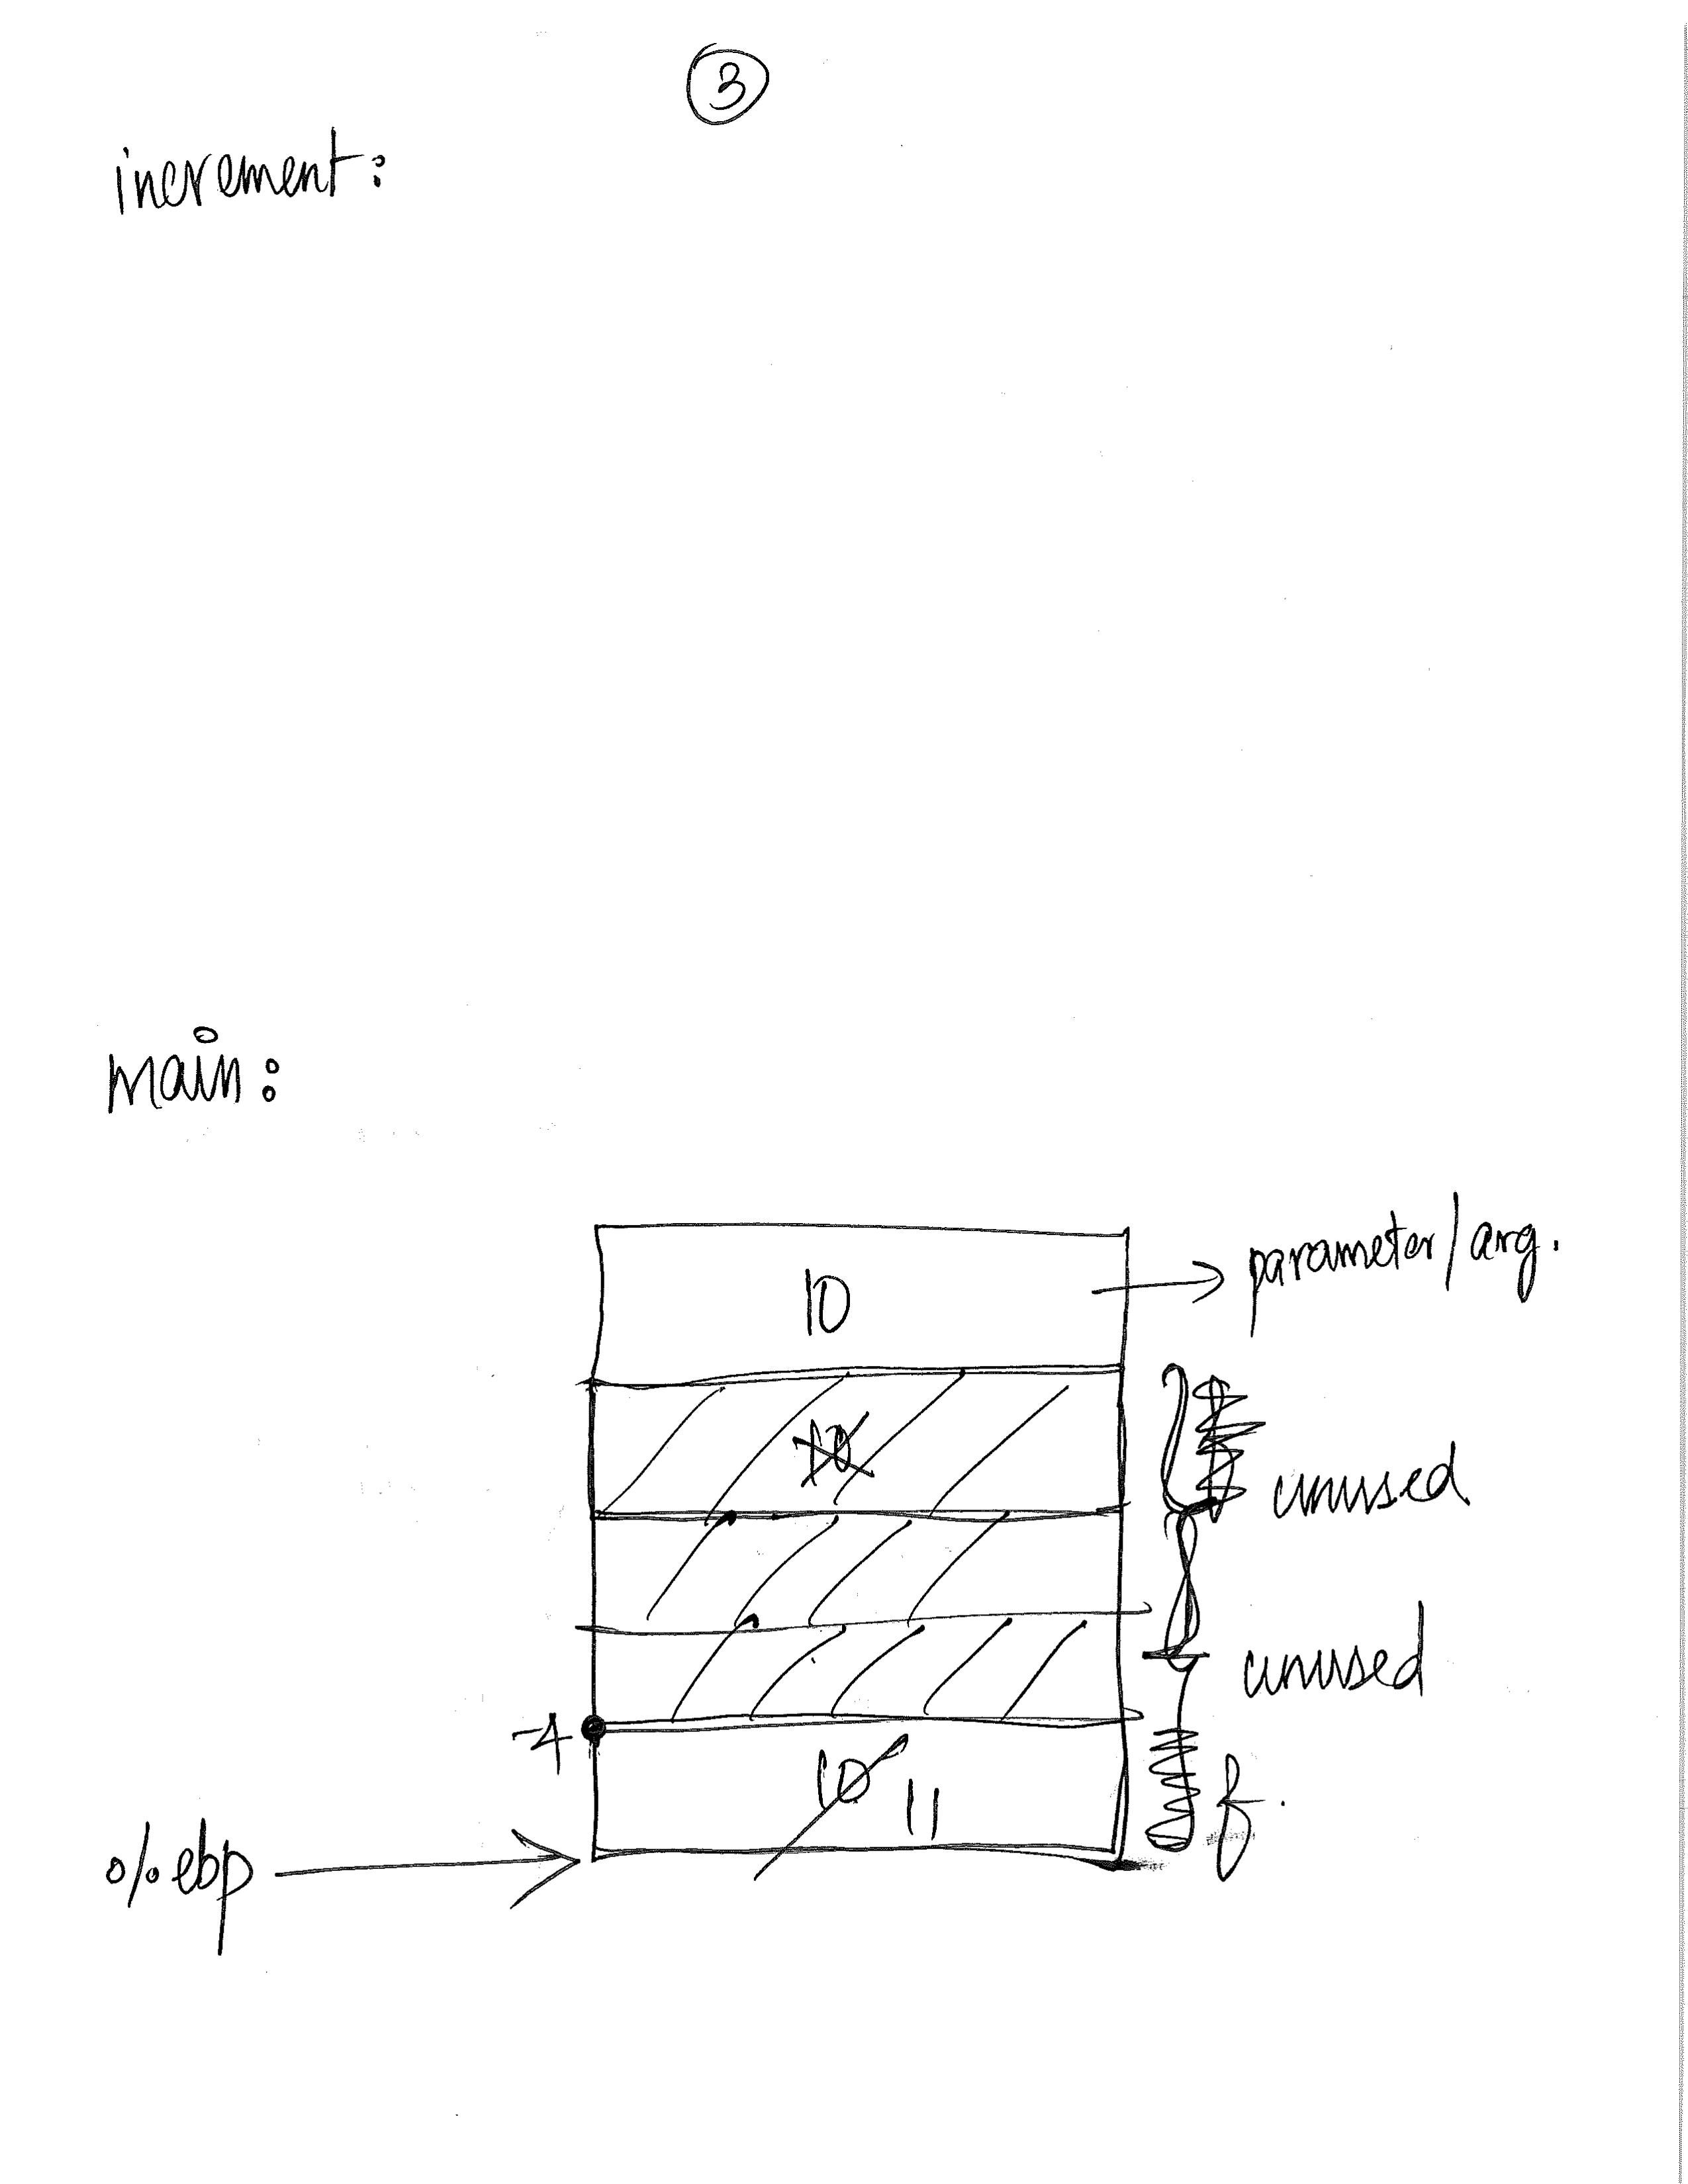 3
increment:
main:
10
parameter/arg.
10
unused
unused
-4
10 11
f.
%ebp